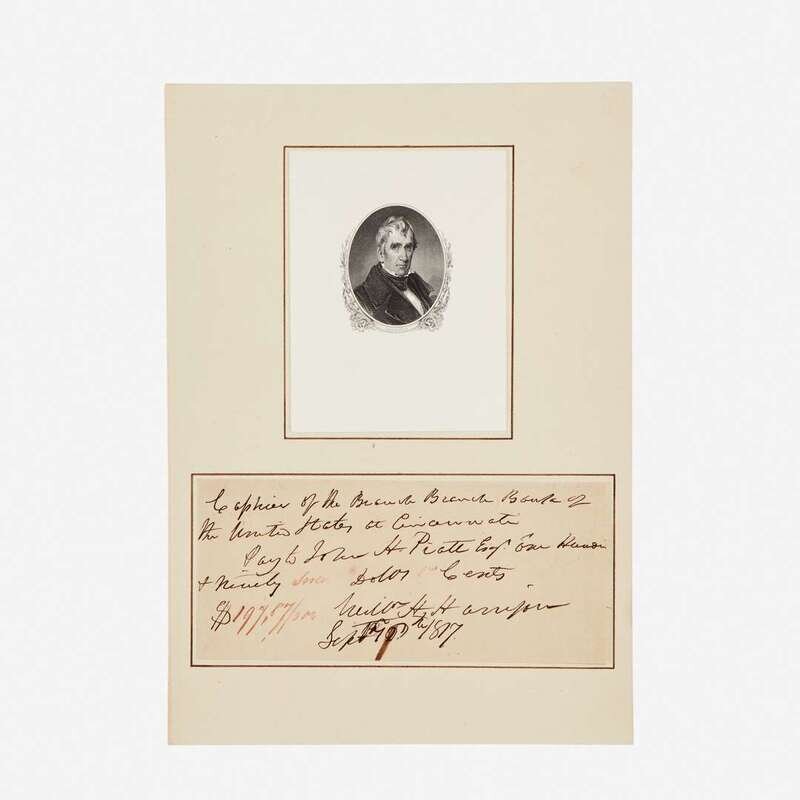 Cashier of the Branch Branch Bank of
the United States at Cincinnate
Pay to John H Piatt Esqr One Hundd
& Ninety Seven Dolls Cents
$197,57/100 Willm H Harrison
Septr 10th 1817